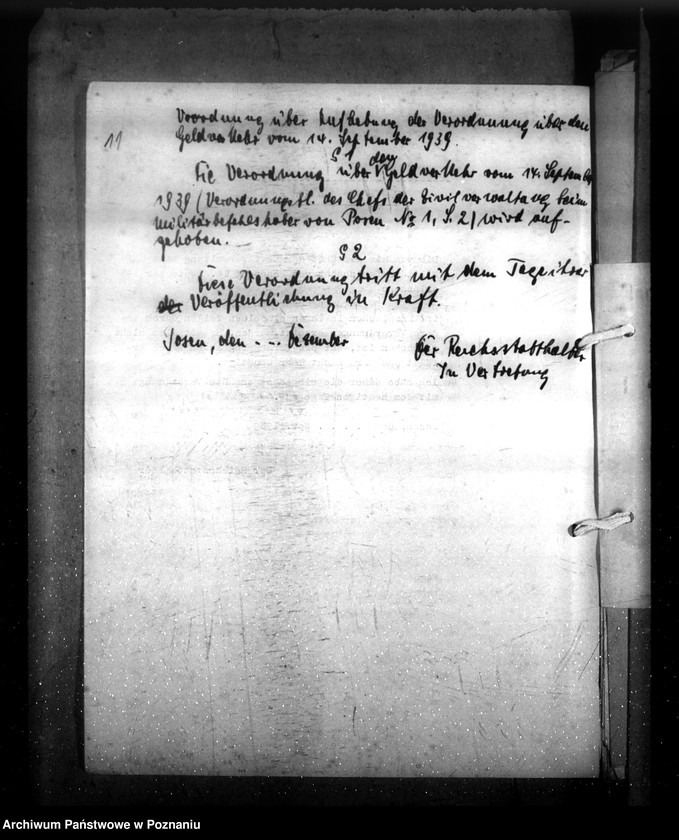 11
Verordnung über Aufhebung der Verordnung über den
Geldverkehr vom 14. September 1939.
§ 1
Die Verordnung über den Geldverkehr vom 14. September
1939 (Verordnungsbl. des Chefs der Zivilverwaltung beim
Militärbefehlshaber von Posen Nr 1, S. 2) wird auf-
gehoben.
§ 2
Diese Verordnung tritt mit dem Tage ihrer
der Veröffentlichung in Kraft.
Posen, den . . . Dezember
Der Reichsstatthalter
In Vertretung
Archiwum Państwowe w Poznaniu